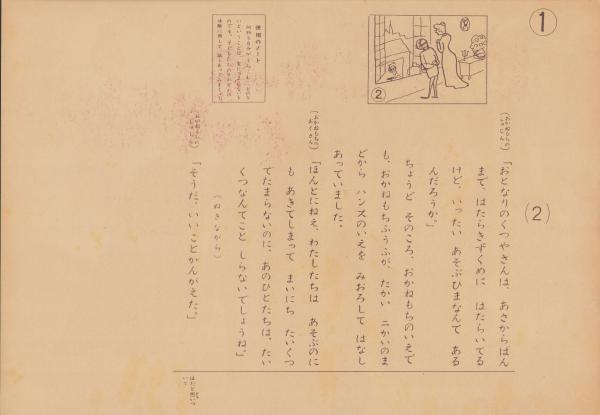 1
(2)
(おかねもちの しゅじん)
「おとなりのくつやさんは、あさからばん
まで、はたらきずくめに はたらいてる
けど、いったい あそぶひまなんて ある
んだろうか。」
ちょうど そのころ、おかねもちのいえで
も、おかねもちふうふが、たかい 二かいのま
どから ハンスのいえを みおろして はなし
あっていました。
(おかねもちの おくさん)
「ほんとにねえ、わたしたちは あそぶのに
も あきてしまって まいにち たいくつ
でたまらないのに、あのひとたちは、たい
くつなんてこと しらないでしょうね。」
(ぬきながら)
「そうだ、いいことかんがえた。」
はたと思いつ
いて
2
使用のノート